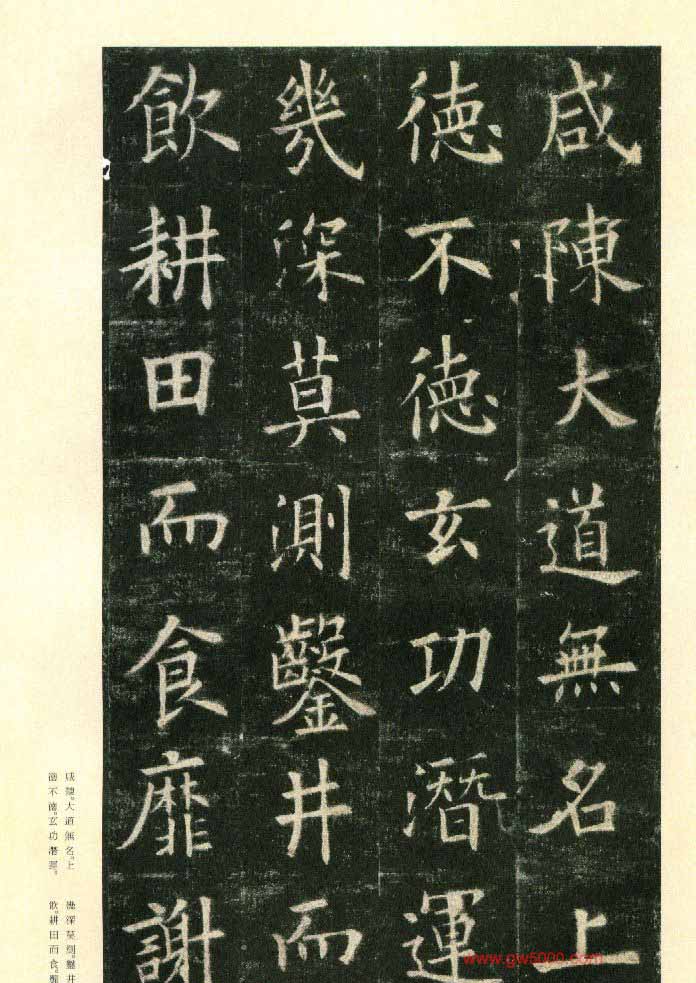 咸陳大道無名上
德不德玄功潛運
幾深莫測鑿井而
飲耕田而食靡謝
咸陳。大道無名。上
德不德。玄功潛運。
幾深莫測。鑿井
飲。耕田而食。靡
www.gw5000.com